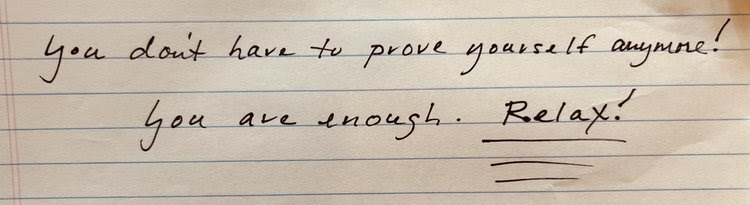 you don't have to prove yourself anymore!
You are enough. Relax!